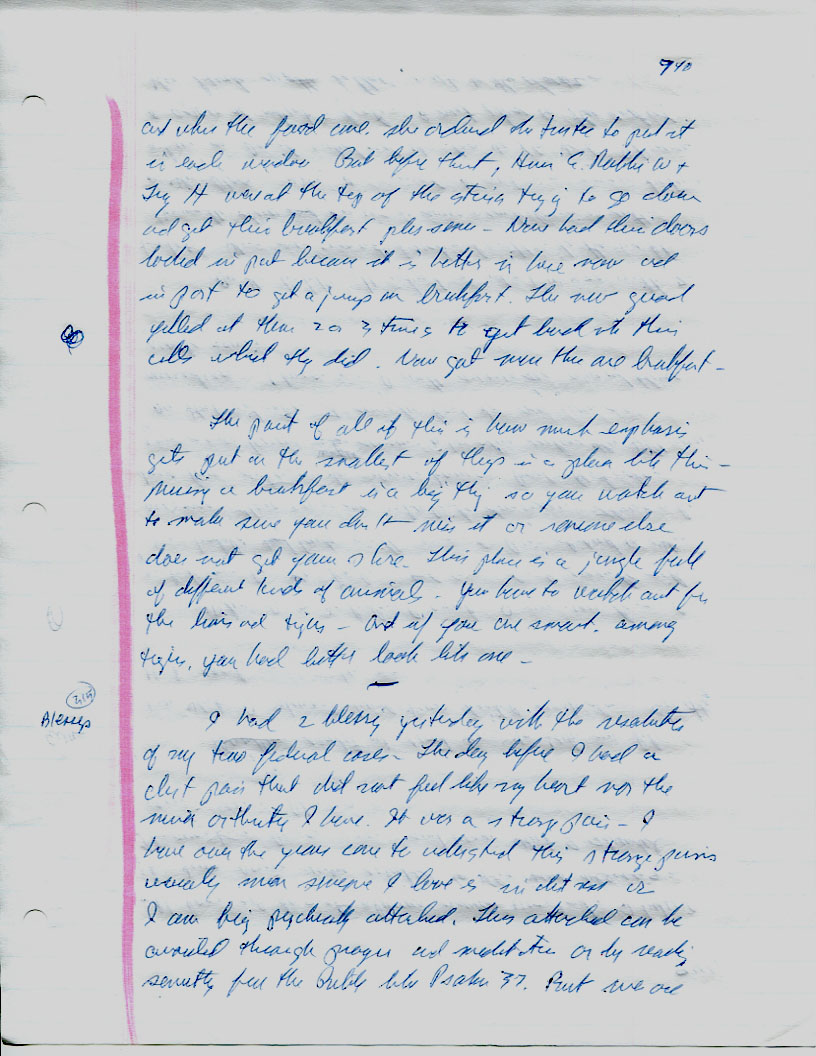 940
and when the food came. she ordered the trustee to put it
in each window But before that, G. Robbie W +
H were at the top of the stairs trying to go down
and get their breakfast plus some - Now had their doors
locked in part because it is better in here now and
in part to get a jump on breakfast. The new guard
yelled at them 2 or 3 times to get back into their
cells which they did. Now got more than one breakfast -
The point of all of this is how much emphasis
gets put on the smallest of things in a place like this -
Missing a breakfast is a big thing so you watch out
to make sure you don't miss it or someone else
does not get your share. This place is a jungle full
of different kinds of animals. You have to watch out for
the lions and tigers - And if you are smart. among
tigers, you had better look like one -
315
Blessings
I had 2 blessing yesterday with the resolution
of my two federal cases - The day before I had a
chest pain that did not feel like my heart nor the
minor arthritis I have. It was a strange pain - I
have over the years come to understand this strange pains
usually mean someone I love is in distress or
I am being psychically attacked. This attacked can be
avoided through prayer and meditation or by reading
something from the Bible like Psalm 37. But we are